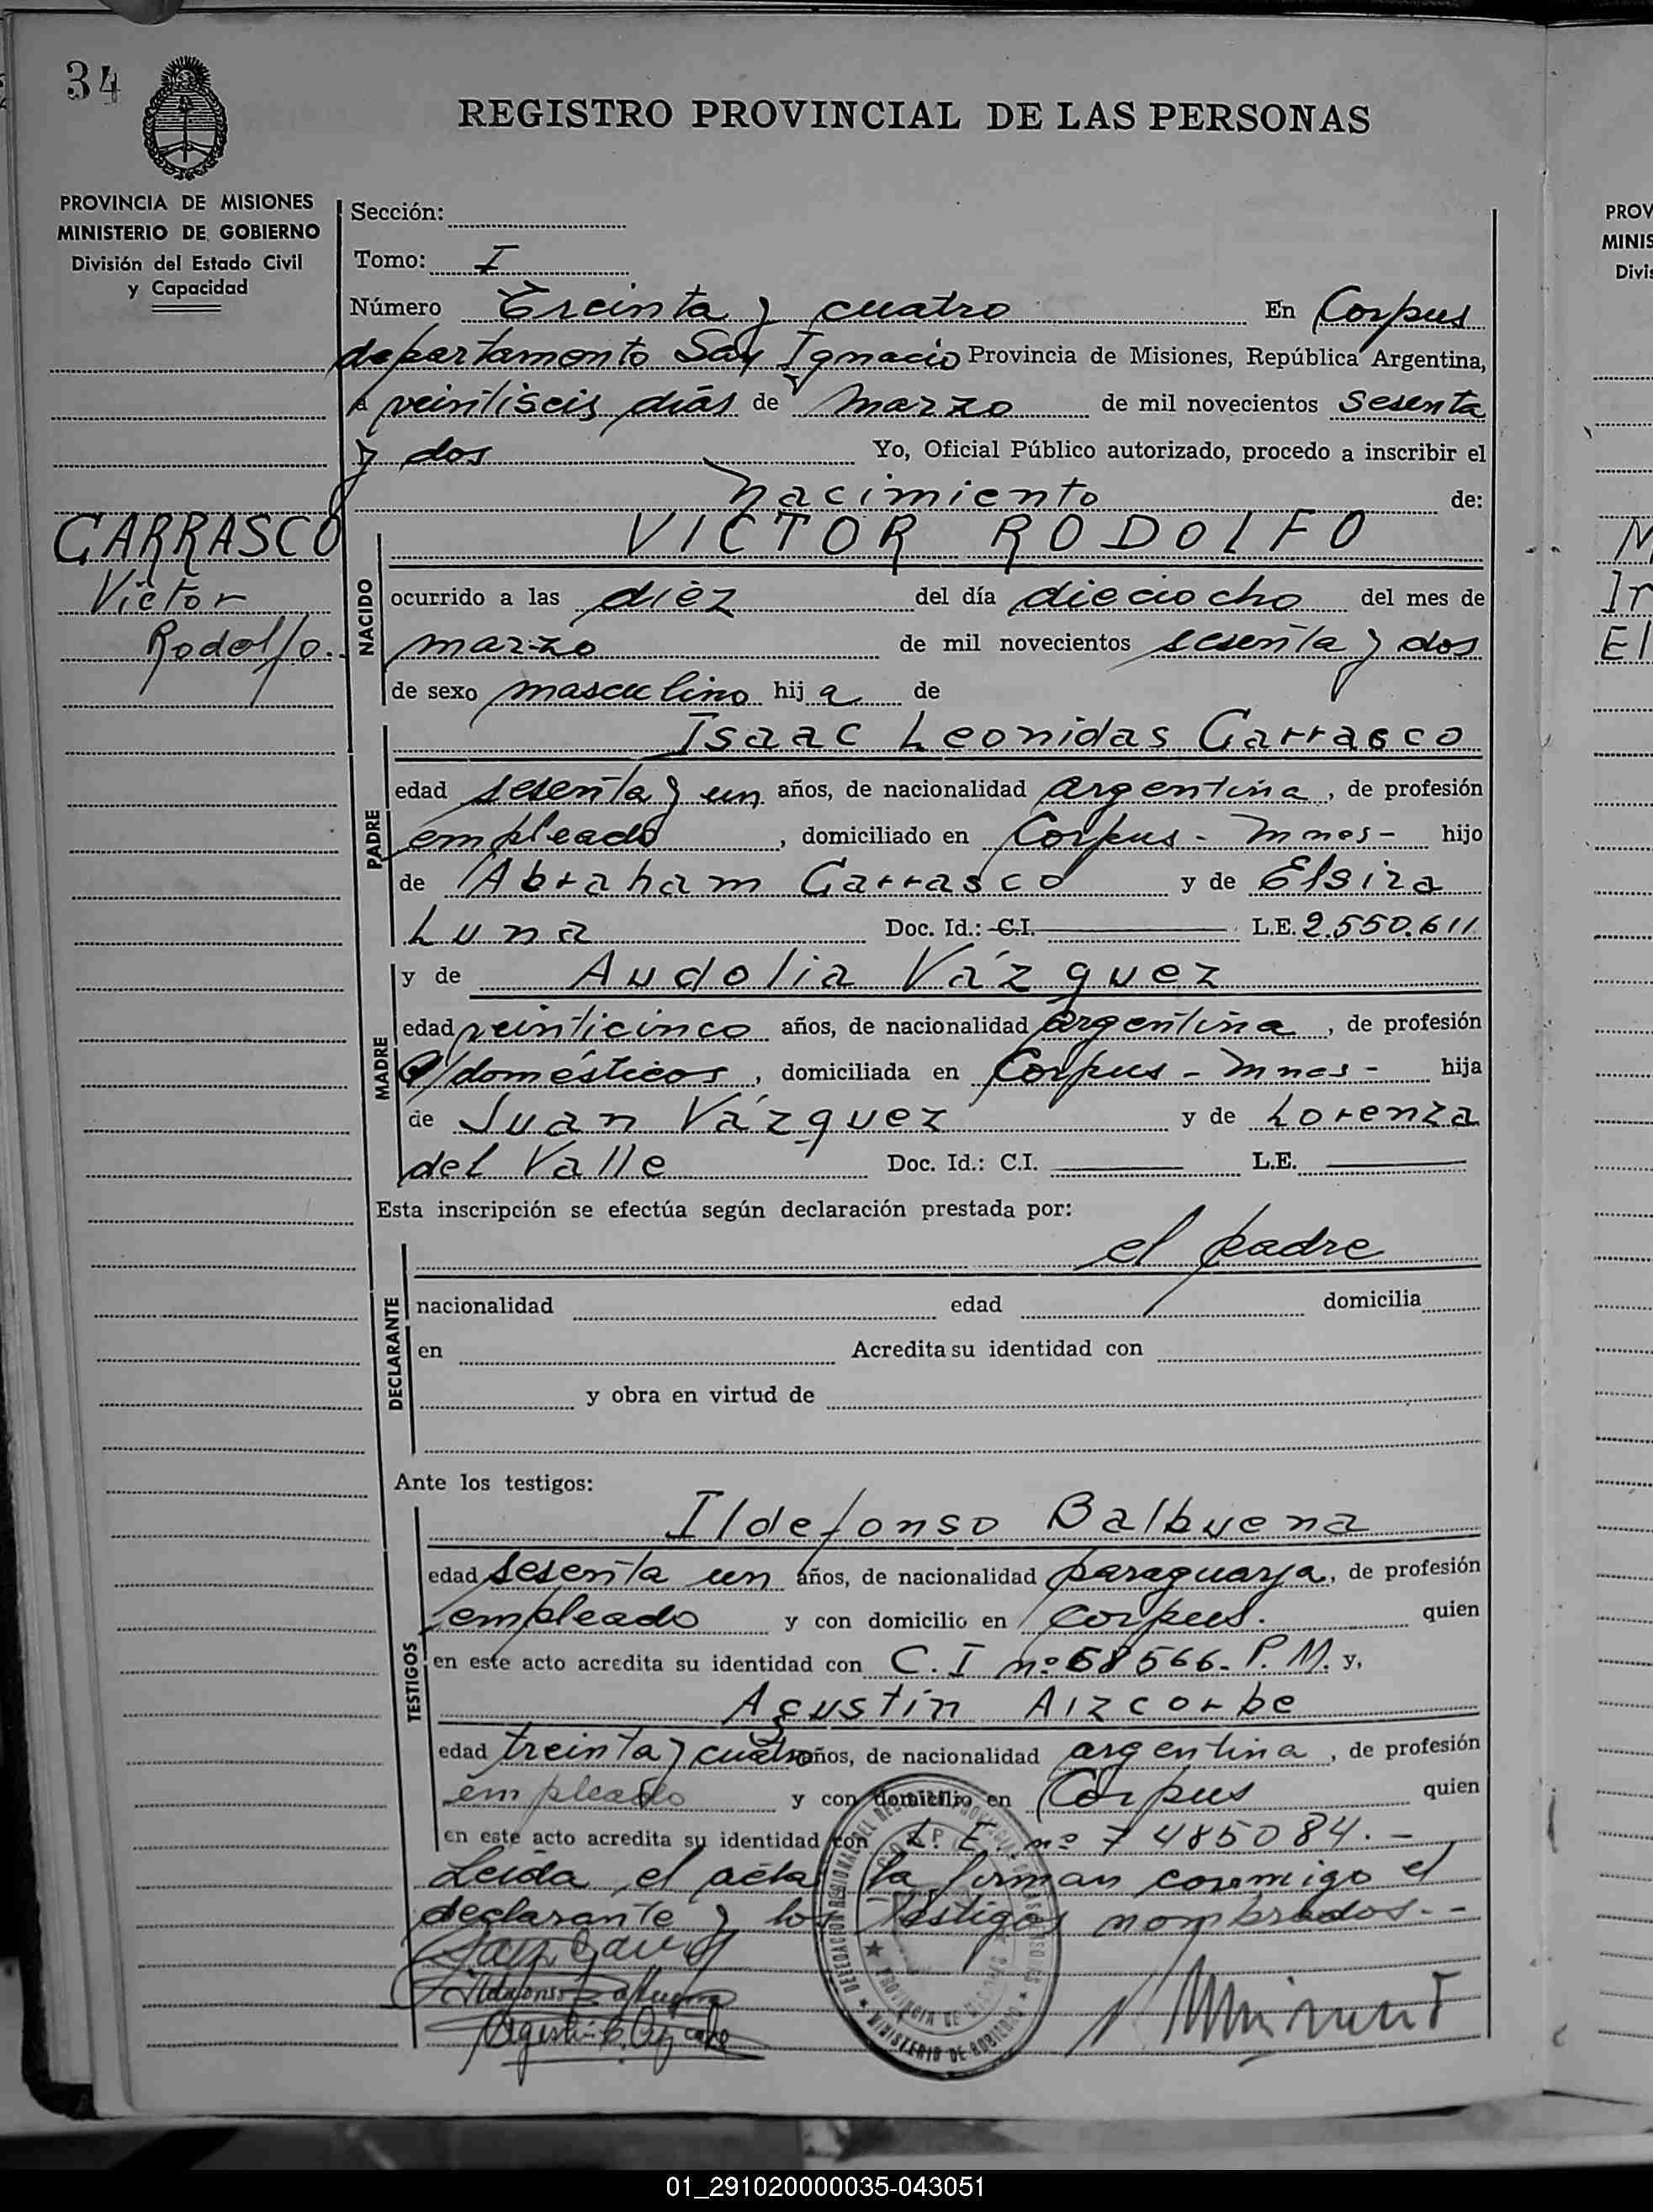 34
REGISTRO PROVINCIAL DE LAS PERSONAS
PROVINCIA DE MISIONES
MINISTERIO DE GOBIERNO
División del Estado Civil
y Capacidad
Sección:
Tomo: I
Número Treinta y cuatro En Corpus
departamento San Ignacio Provincia de Misiones, República Argentina,
a veintiseis dias de marzo de mil novecientos sesenta
y dos Yo, Oficial Público autorizado, procedo a inscribir el
nacimiento de:
CARRASCO
Victor
Rodolfo.
NACIDO
VICTOR RODOLFO
ocurrido a las diez del día dieciocho del mes de
marzo de mil novecientos sesenta y dos
de sexo masculino hij o de
PADRE
Isaac Leonidas Carrasco
edad sesenta y un años, de nacionalidad argentina, de profesión
empleado, domiciliado en Corpus - Mnes - hijo
de Abraham Carrasco y de Elsira
Luna Doc. Id.: C.I. L.E. 2.550.611
MADRE
y de Audolia Vázquez
edad veinticinco años, de nacionalidad argentina, de profesión
q/domésticos, domiciliada en Corpus - Mnes - hija
de Juan Vázquez y de Lorenza
del Valle Doc. Id.: C.I. L.E.
Esta inscripción se efectúa según declaración prestada por:
DECLARANTE
el padre
nacionalidad edad domicilia
en Acredita su identidad con
y obra en virtud de
Ante los testigos:
TESTIGOS
Ildefonso Balbuena
edad sesenta un años, de nacionalidad paraguaya, de profesión
empleado y con domicilio en Corpus. quien
en este acto acredita su identidad con C.I nº 68566. P.M. y,
Agustin Aizcorbe
edad treinta y cuatro años, de nacionalidad argentina, de profesión
empleado y con domicilio en Corpus quien
en este acto acredita su identidad con L.E. nº 7485084.-
Leida el acta la firman conmigo el
declarante y los testigos nombrados.-
Ildefonso Balbuena
MINISTERIO DE GOBIERNO
PROV
MINIS
Divis
M
Ir
El
01_291020000035-043051